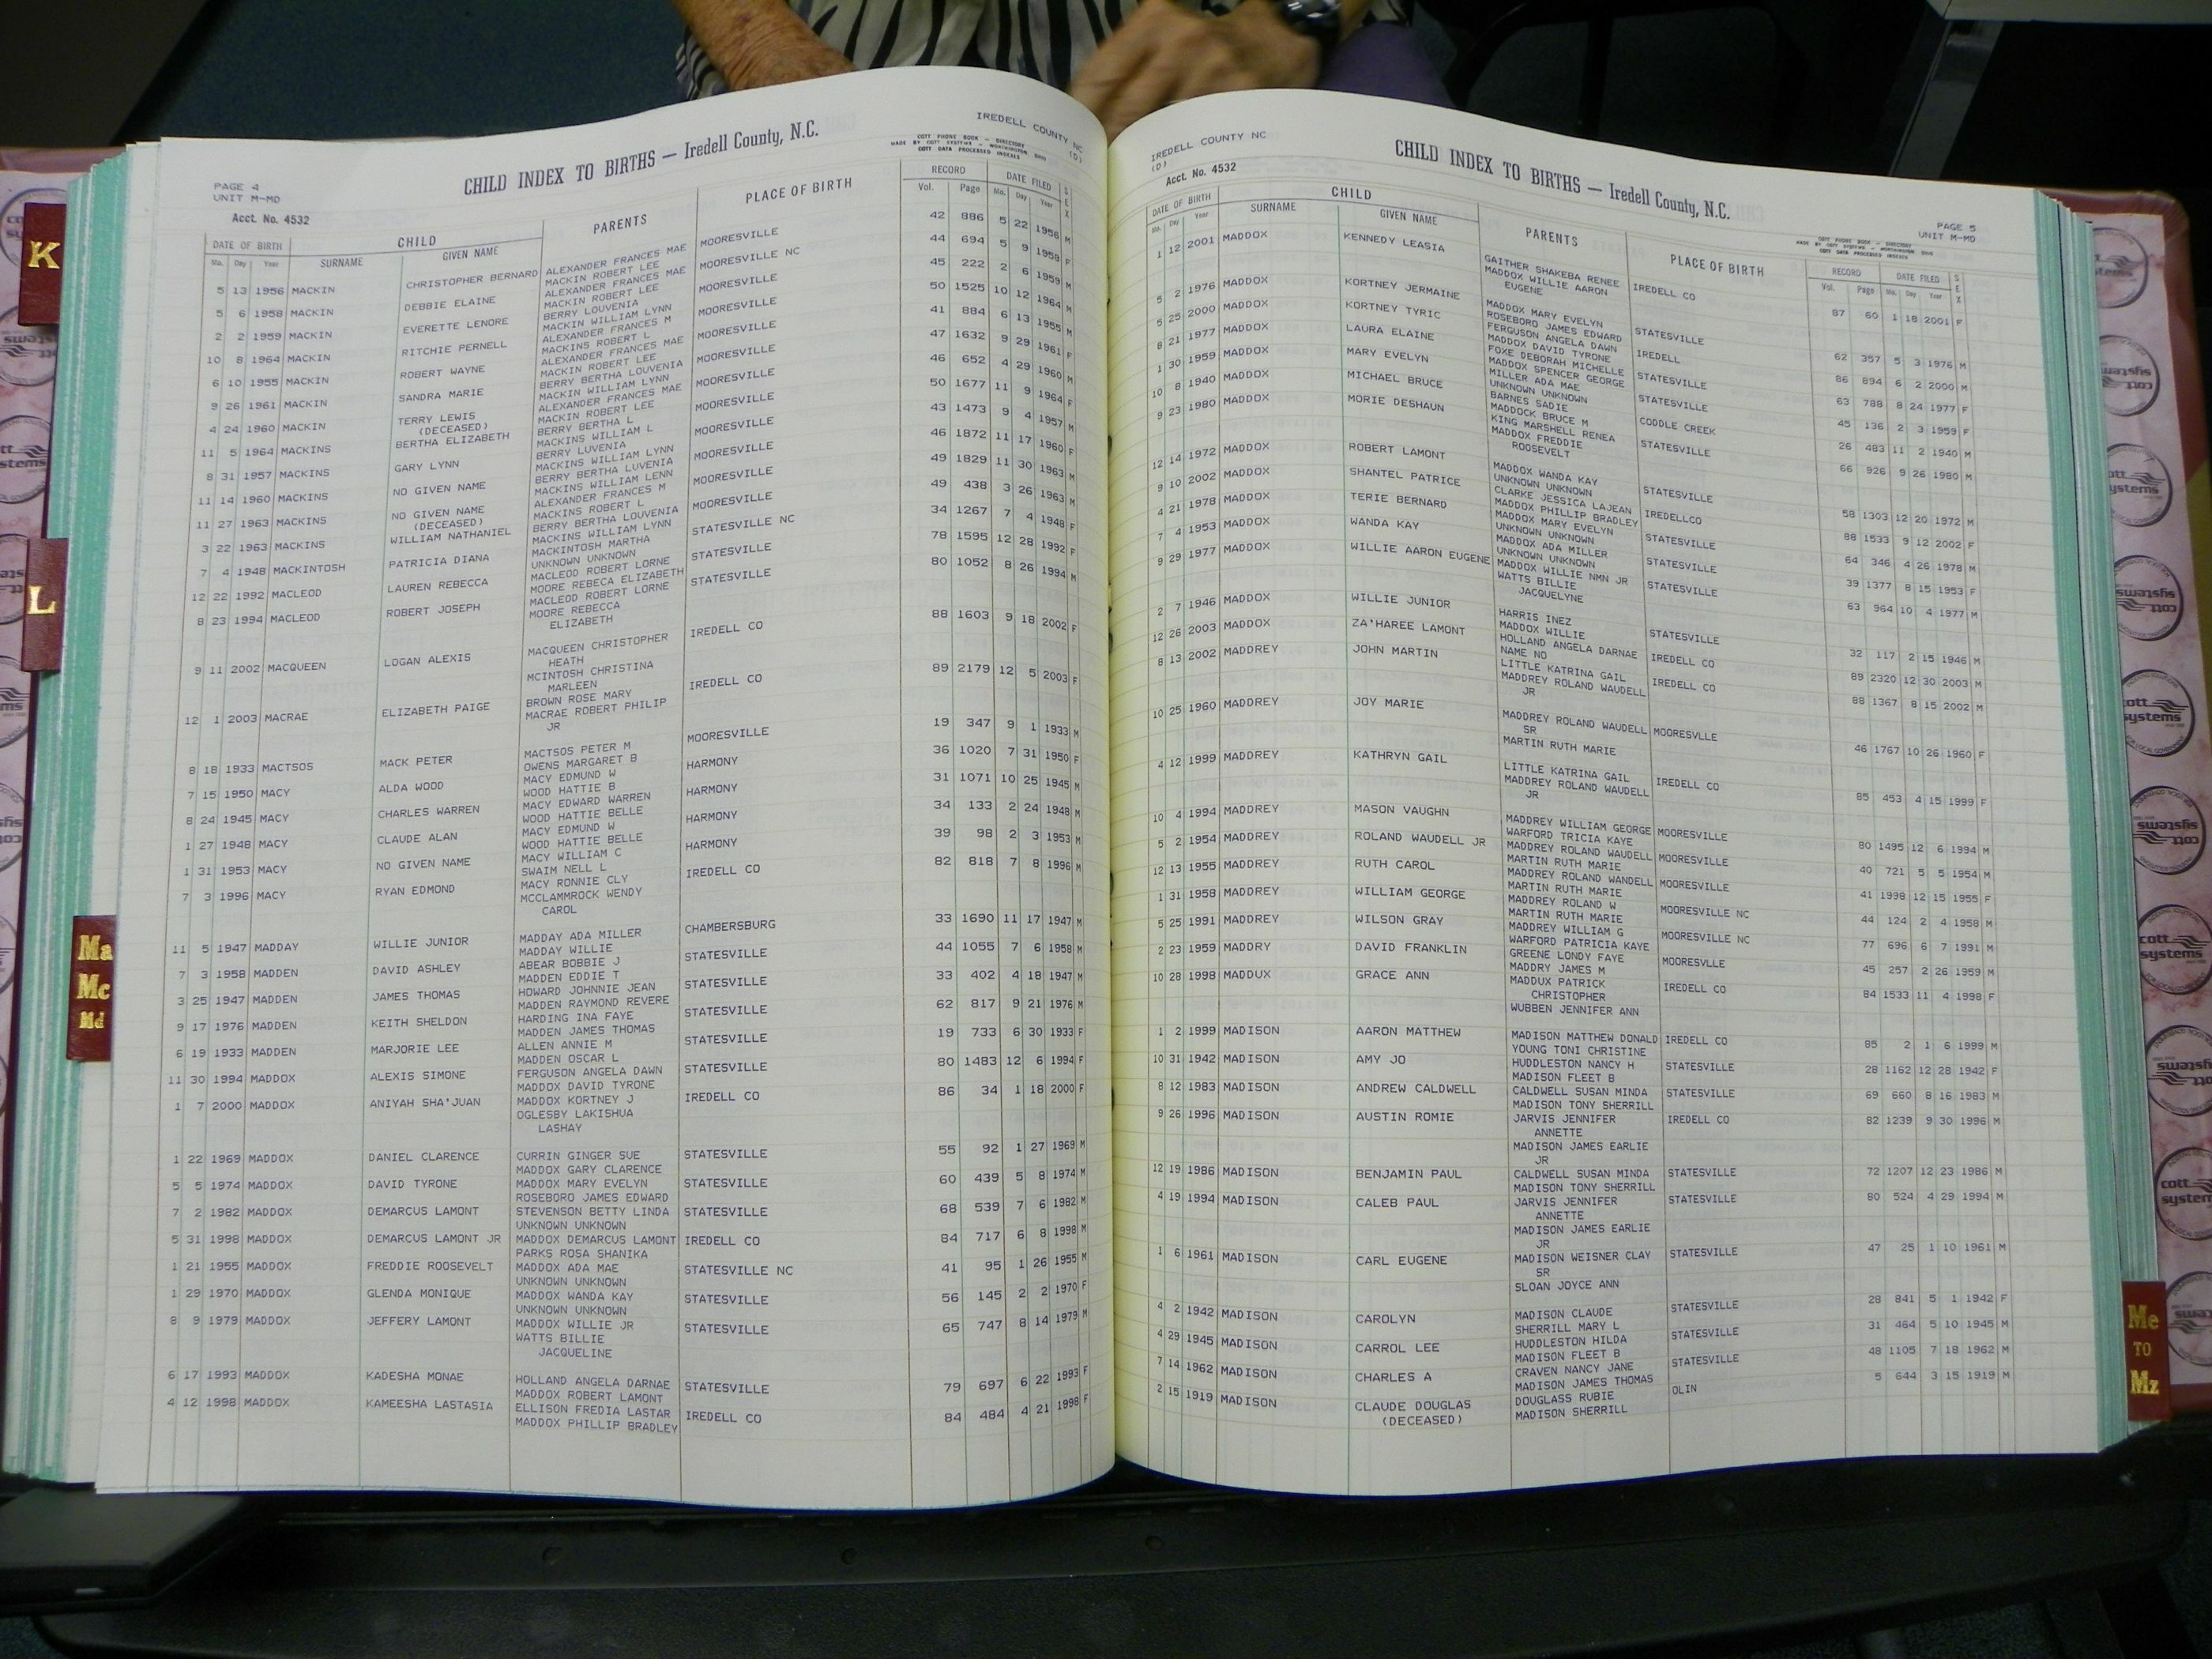 K
L
Ma
Mc
Md
Me
TO
Mz
cott
systems
IREDELL COUNTY NC
(D)
CHILD INDEX TO BIRTHS — Iredell County, N.C.
COTT PHONE BOOK - DIRECTORY
MADE BY COTT SYSTEMS - WORTHINGTON, OHIO
COTT DATA PROCESSED INDEXES
PAGE 4
UNIT M-MD
Acct. No. 4532
DATE OF BIRTH CHILD PARENTS PLACE OF BIRTH RECORD DATE FILED SEX
Mo. Day Year SURNAME GIVEN NAME Vol. Page Mo. Day Year
5 13 1956 MACKIN CHRISTOPHER BERNARD ALEXANDER FRANCES MAE MOORESVILLE 42 886 5 22 1956 M
MACKIN ROBERT LEE
5 6 1958 MACKIN DEBBIE ELAINE ALEXANDER FRANCES MAE MOORESVILLE NC 44 694 5 9 1958 F
MACKIN ROBERT LEE
2 2 1959 MACKIN EVERETTE LENORE BERRY LOUVENIA MOORESVILLE 45 222 2 6 1959 M
MACKIN WILLIAM LYNN
10 8 1964 MACKIN RITCHIE PERNELL ALEXANDER FRANCES M MOORESVILLE 50 1525 10 12 1964 M
MACKINS ROBERT L
6 10 1955 MACKIN ROBERT WAYNE ALEXANDER FRANCES MAE MOORESVILLE 41 884 6 13 1955 M
MACKIN ROBERT LEE
9 26 1961 MACKIN SANDRA MARIE BERRY BERTHA LOUVENIA MOORESVILLE 47 1632 9 29 1961 F
MACKIN WILLIAM LYNN
4 24 1960 MACKIN TERRY LEWIS ALEXANDER FRANCES MAE MOORESVILLE 46 652 4 29 1960 M
(DECEASED) MACKIN ROBERT LEE
11 5 1964 MACKINS BERTHA ELIZABETH BERRY BERTHA L MOORESVILLE 50 1677 11 9 1964 F
MACKINS WILLIAM L
8 31 1957 MACKINS GARY LYNN BERRY LUVENIA MOORESVILLE 43 1473 9 4 1957 M
MACKINS WILLIAM LYNN
11 14 1960 MACKINS NO GIVEN NAME BERRY BERTHA LUVENIA MOORESVILLE 46 1872 11 17 1960 F
MACKINS WILLIAM LENN
11 27 1963 MACKINS NO GIVEN NAME ALEXANDER FRANCES M MOORESVILLE 49 1829 11 30 1963 M
(DECEASED) MACKINS ROBERT L
3 22 1963 MACKINS WILLIAM NATHANIEL BERRY BERTHA LOUVENIA MOORESVILLE 49 438 3 26 1963 M
MACKINS WILLIAM LYNN
7 4 1948 MACKINTOSH PATRICIA DIANA MACKINTOSH MARTHA STATESVILLE NC 34 1267 7 4 1948 F
UNKNOWN UNKNOWN
12 22 1992 MACLEOD LAUREN REBECCA MACLEOD ROBERT LORNE STATESVILLE 78 1595 12 28 1992 F
MOORE REBECA ELIZABETH
8 23 1994 MACLEOD ROBERT JOSEPH MACLEOD ROBERT LORNE STATESVILLE 80 1052 8 26 1994 M
MOORE REBECCA
ELIZABETH
9 11 2002 MACQUEEN LOGAN ALEXIS MACQUEEN CHRISTOPHER IREDELL CO 88 1603 9 18 2002 F
HEATH
MCINTOSH CHRISTINA
MARLEEN
12 1 2003 MACRAE ELIZABETH PAIGE BROWN ROSE MARY IREDELL CO 89 2179 12 5 2003 F
MACRAE ROBERT PHILIP
JR
8 18 1933 MACTSOS MACK PETER MACTSOS PETER M MOORESVILLE 19 347 9 1 1933 M
OWENS MARGARET B
7 15 1950 MACY ALDA WOOD MACY EDMUND W HARMONY 36 1020 7 31 1950 F
WOOD HATTIE B
8 24 1945 MACY CHARLES WARREN MACY EDWARD WARREN HARMONY 31 1071 10 25 1945 M
WOOD HATTIE BELLE
1 27 1948 MACY CLAUDE ALAN MACY EDMUND W HARMONY 34 133 2 24 1948 M
WOOD HATTIE BELLE
1 31 1953 MACY NO GIVEN NAME MACY WILLIAM C HARMONY 39 98 2 3 1953 M
SWAIM NELL L
7 3 1996 MACY RYAN EDMOND MACY RONNIE CLY IREDELL CO 82 818 7 8 1996 M
MCCLAMMROCK WENDY
CAROL
11 5 1947 MADDAY WILLIE JUNIOR MADDAY ADA MILLER CHAMBERSBURG 33 1690 11 17 1947 M
MADDAY WILLIE
7 3 1958 MADDEN DAVID ASHLEY ABEAR BOBBIE J STATESVILLE 44 1055 7 6 1958 M
MADDEN EDDIE T
3 25 1947 MADDEN JAMES THOMAS HOWARD JOHNNIE JEAN STATESVILLE 33 402 4 18 1947 M
MADDEN RAYMOND REVERE
9 17 1976 MADDEN KEITH SHELDON HARDING INA FAYE STATESVILLE 62 817 9 21 1976 M
MADDEN JAMES THOMAS
6 19 1933 MADDEN MARJORIE LEE ALLEN ANNIE M STATESVILLE 19 733 6 30 1933 F
MADDEN OSCAR L
11 30 1994 MADDOX ALEXIS SIMONE FERGUSON ANGELA DAWN STATESVILLE 80 1483 12 6 1994 F
MADDOX DAVID TYRONE
1 7 2000 MADDOX ANIYAH SHA'JUAN MADDOX KORTNEY J IREDELL CO 86 34 1 18 2000 F
OGLESBY LAKISHUA
LASHAY
1 22 1969 MADDOX DANIEL CLARENCE CURRIN GINGER SUE STATESVILLE 55 92 1 27 1969 M
MADDOX GARY CLARENCE
5 5 1974 MADDOX DAVID TYRONE MADDOX MARY EVELYN STATESVILLE 60 439 5 8 1974 M
ROSEBORO JAMES EDWARD
7 2 1982 MADDOX DEMARCUS LAMONT STEVENSON BETTY LINDA STATESVILLE 68 539 7 6 1982 M
UNKNOWN UNKNOWN
5 31 1998 MADDOX DEMARCUS LAMONT JR MADDOX DEMARCUS LAMONT IREDELL CO 84 717 6 8 1998 M
PARKS ROSA SHANIKA
1 21 1955 MADDOX FREDDIE ROOSEVELT MADDOX ADA MAE STATESVILLE NC 41 95 1 26 1955 M
UNKNOWN UNKNOWN
1 29 1970 MADDOX GLENDA MONIQUE MADDOX WANDA KAY STATESVILLE 56 145 2 2 1970 F
UNKNOWN UNKNOWN
8 9 1979 MADDOX JEFFERY LAMONT MADDOX WILLIE JR STATESVILLE 65 747 8 14 1979 M
WATTS BILLIE
JACQUELINE
6 17 1993 MADDOX KADESHA MONAE HOLLAND ANGELA DARNAE STATESVILLE 79 697 6 22 1993 F
MADDOX ROBERT LAMONT
4 12 1998 MADDOX KAMEESHA LASTASIA ELLISON FREDIA LASTAR IREDELL CO 84 484 4 21 1998 F
MADDOX PHILLIP BRADLEY
IREDELL COUNTY NC
(D)
Acct. No. 4532
CHILD INDEX TO BIRTHS — Iredell County, N.C.
PAGE 5
UNIT M-MD
COTT PHONE BOOK - DIRECTORY
MADE BY COTT SYSTEMS - WORTHINGTON, OHIO
COTT DATA PROCESSED INDEXES
DATE OF BIRTH CHILD PARENTS PLACE OF BIRTH RECORD DATE FILED SEX
Mo. Day Year SURNAME GIVEN NAME Vol. Page Mo. Day Year
1 12 2001 MADDOX KENNEDY LEASIA GAITHER SHAKEBA RENEE IREDELL CO 87 60 1 18 2001 F
MADDOX WILLIE AARON
EUGENE
5 2 1976 MADDOX KORTNEY JERMAINE MADDOX MARY EVELYN STATESVILLE 62 357 5 3 1976 M
ROSEBORO JAMES EDWARD
5 25 2000 MADDOX KORTNEY TYRIC FERGUSON ANGELA DAWN IREDELL 86 894 6 2 2000 M
MADDOX DAVID TYRONE
8 21 1977 MADDOX LAURA ELAINE FOXE DEBORAH MICHELLE STATESVILLE 63 788 8 24 1977 F
MADDOX SPENCER GEORGE
1 30 1959 MADDOX MARY EVELYN MILLER ADA MAE STATESVILLE 45 136 2 3 1959 F
UNKNOWN UNKNOWN
10 8 1940 MADDOX MICHAEL BRUCE BARNES SADIE CODDLE CREEK 26 483 11 2 1940 M
MADDOCK BRUCE M
9 23 1980 MADDOX MORIE DESHAUN KING MARSHELL RENEA STATESVILLE 66 926 9 26 1980 M
MADDOX FREDDIE
ROOSEVELT
12 14 1972 MADDOX ROBERT LAMONT MADDOX WANDA KAY STATESVILLE 58 1303 12 20 1972 M
UNKNOWN UNKNOWN
9 10 2002 MADDOX SHANTEL PATRICE CLARKE JESSICA LAJEAN IREDELLCO 88 1533 9 12 2002 F
MADDOX PHILLIP BRADLEY
4 21 1978 MADDOX TERIE BERNARD MADDOX MARY EVELYN STATESVILLE 64 346 4 26 1978 M
UNKNOWN UNKNOWN
7 4 1953 MADDOX WANDA KAY MADDOX ADA MILLER STATESVILLE 39 1377 8 15 1953 F
UNKNOWN UNKNOWN
9 29 1977 MADDOX WILLIE AARON EUGENE MADDOX WILLIE NMN JR STATESVILLE 63 964 10 4 1977 M
WATTS BILLIE
JACQUELYNE
2 7 1946 MADDOX WILLIE JUNIOR HARRIS INEZ STATESVILLE 32 117 2 15 1946 M
MADDOX WILLIE
12 26 2003 MADDOX ZA'HAREE LAMONT HOLLAND ANGELA DARNAE IREDELL CO 89 2320 12 30 2003 M
NAME NO
8 13 2002 MADDREY JOHN MARTIN LITTLE KATRINA GAIL IREDELL CO 88 1367 8 15 2002 M
MADDREY ROLAND WAUDELL
JR
10 25 1960 MADDREY JOY MARIE MADDREY ROLAND WAUDELL MOORESVLLE 46 1767 10 26 1960 F
SR
MARTIN RUTH MARIE
4 12 1999 MADDREY KATHRYN GAIL LITTLE KATRINA GAIL IREDELL CO 85 453 4 15 1999 F
MADDREY ROLAND WAUDELL
JR
10 4 1994 MADDREY MASON VAUGHN MADDREY WILLIAM GEORGE MOORESVILLE 80 1495 12 6 1994 M
WARFORD TRICIA KAYE
5 2 1954 MADDREY ROLAND WAUDELL JR MADDREY ROLAND WAUDELL MOORESVILLE 40 721 5 5 1954 M
MARTIN RUTH MARIE
12 13 1955 MADDREY RUTH CAROL MADDREY ROLAND WANDELL MOORESVILLE 41 1998 12 15 1955 F
MARTIN RUTH MARIE
1 31 1958 MADDREY WILLIAM GEORGE MADDREY ROLAND W MOORESVILLE NC 44 124 2 4 1958 M
MARTIN RUTH MARIE
5 25 1991 MADDREY WILSON GRAY MADDREY WILLIAM G MOORESVILLE NC 77 696 6 7 1991 M
WARFORD PATRICIA KAYE
2 23 1959 MADDRY DAVID FRANKLIN GREENE LONDY FAYE MOORESVLLE 45 257 2 26 1959 M
MADDRY JAMES M
10 28 1998 MADDUX GRACE ANN MADDUX PATRICK IREDELL CO 84 1533 11 4 1998 F
CHRISTOPHER
WUBBEN JENNIFER ANN
1 2 1999 MADISON AARON MATTHEW MADISON MATTHEW DONALD IREDELL CO 85 2 1 6 1999 M
YOUNG TONI CHRISTINE
10 31 1942 MADISON AMY JO HUDDLESTON NANCY H STATESVILLE 28 1162 12 28 1942 F
MADISON FLEET B
8 12 1983 MADISON ANDREW CALDWELL CALDWELL SUSAN MINDA STATESVILLE 69 660 8 16 1983 M
MADISON TONY SHERRILL
9 26 1996 MADISON AUSTIN ROMIE JARVIS JENNIFER IREDELL CO 82 1239 9 30 1996 M
ANNETTE
MADISON JAMES EARLIE
JR
12 19 1986 MADISON BENJAMIN PAUL CALDWELL SUSAN MINDA STATESVILLE 72 1207 12 23 1986 M
MADISON TONY SHERRILL
4 19 1994 MADISON CALEB PAUL JARVIS JENNIFER STATESVILLE 80 524 4 29 1994 M
ANNETTE
MADISON JAMES EARLIE
JR
1 6 1961 MADISON CARL EUGENE MADISON WEISNER CLAY STATESVILLE 47 25 1 10 1961 M
SR
SLOAN JOYCE ANN
4 2 1942 MADISON CAROLYN MADISON CLAUDE STATESVILLE 28 841 5 1 1942 F
SHERRILL MARY L
4 29 1945 MADISON CARROL LEE HUDDLESTON HILDA STATESVILLE 31 464 5 10 1945 M
MADISON FLEET B
7 14 1962 MADISON CHARLES A CRAVEN NANCY JANE STATESVILLE 48 1105 7 18 1962 M
MADISON JAMES THOMAS
2 15 1919 MADISON CLAUDE DOUGLAS DOUGLASS RUBIE OLIN 5 644 3 15 1919 M
(DECEASED) MADISON SHERRILL